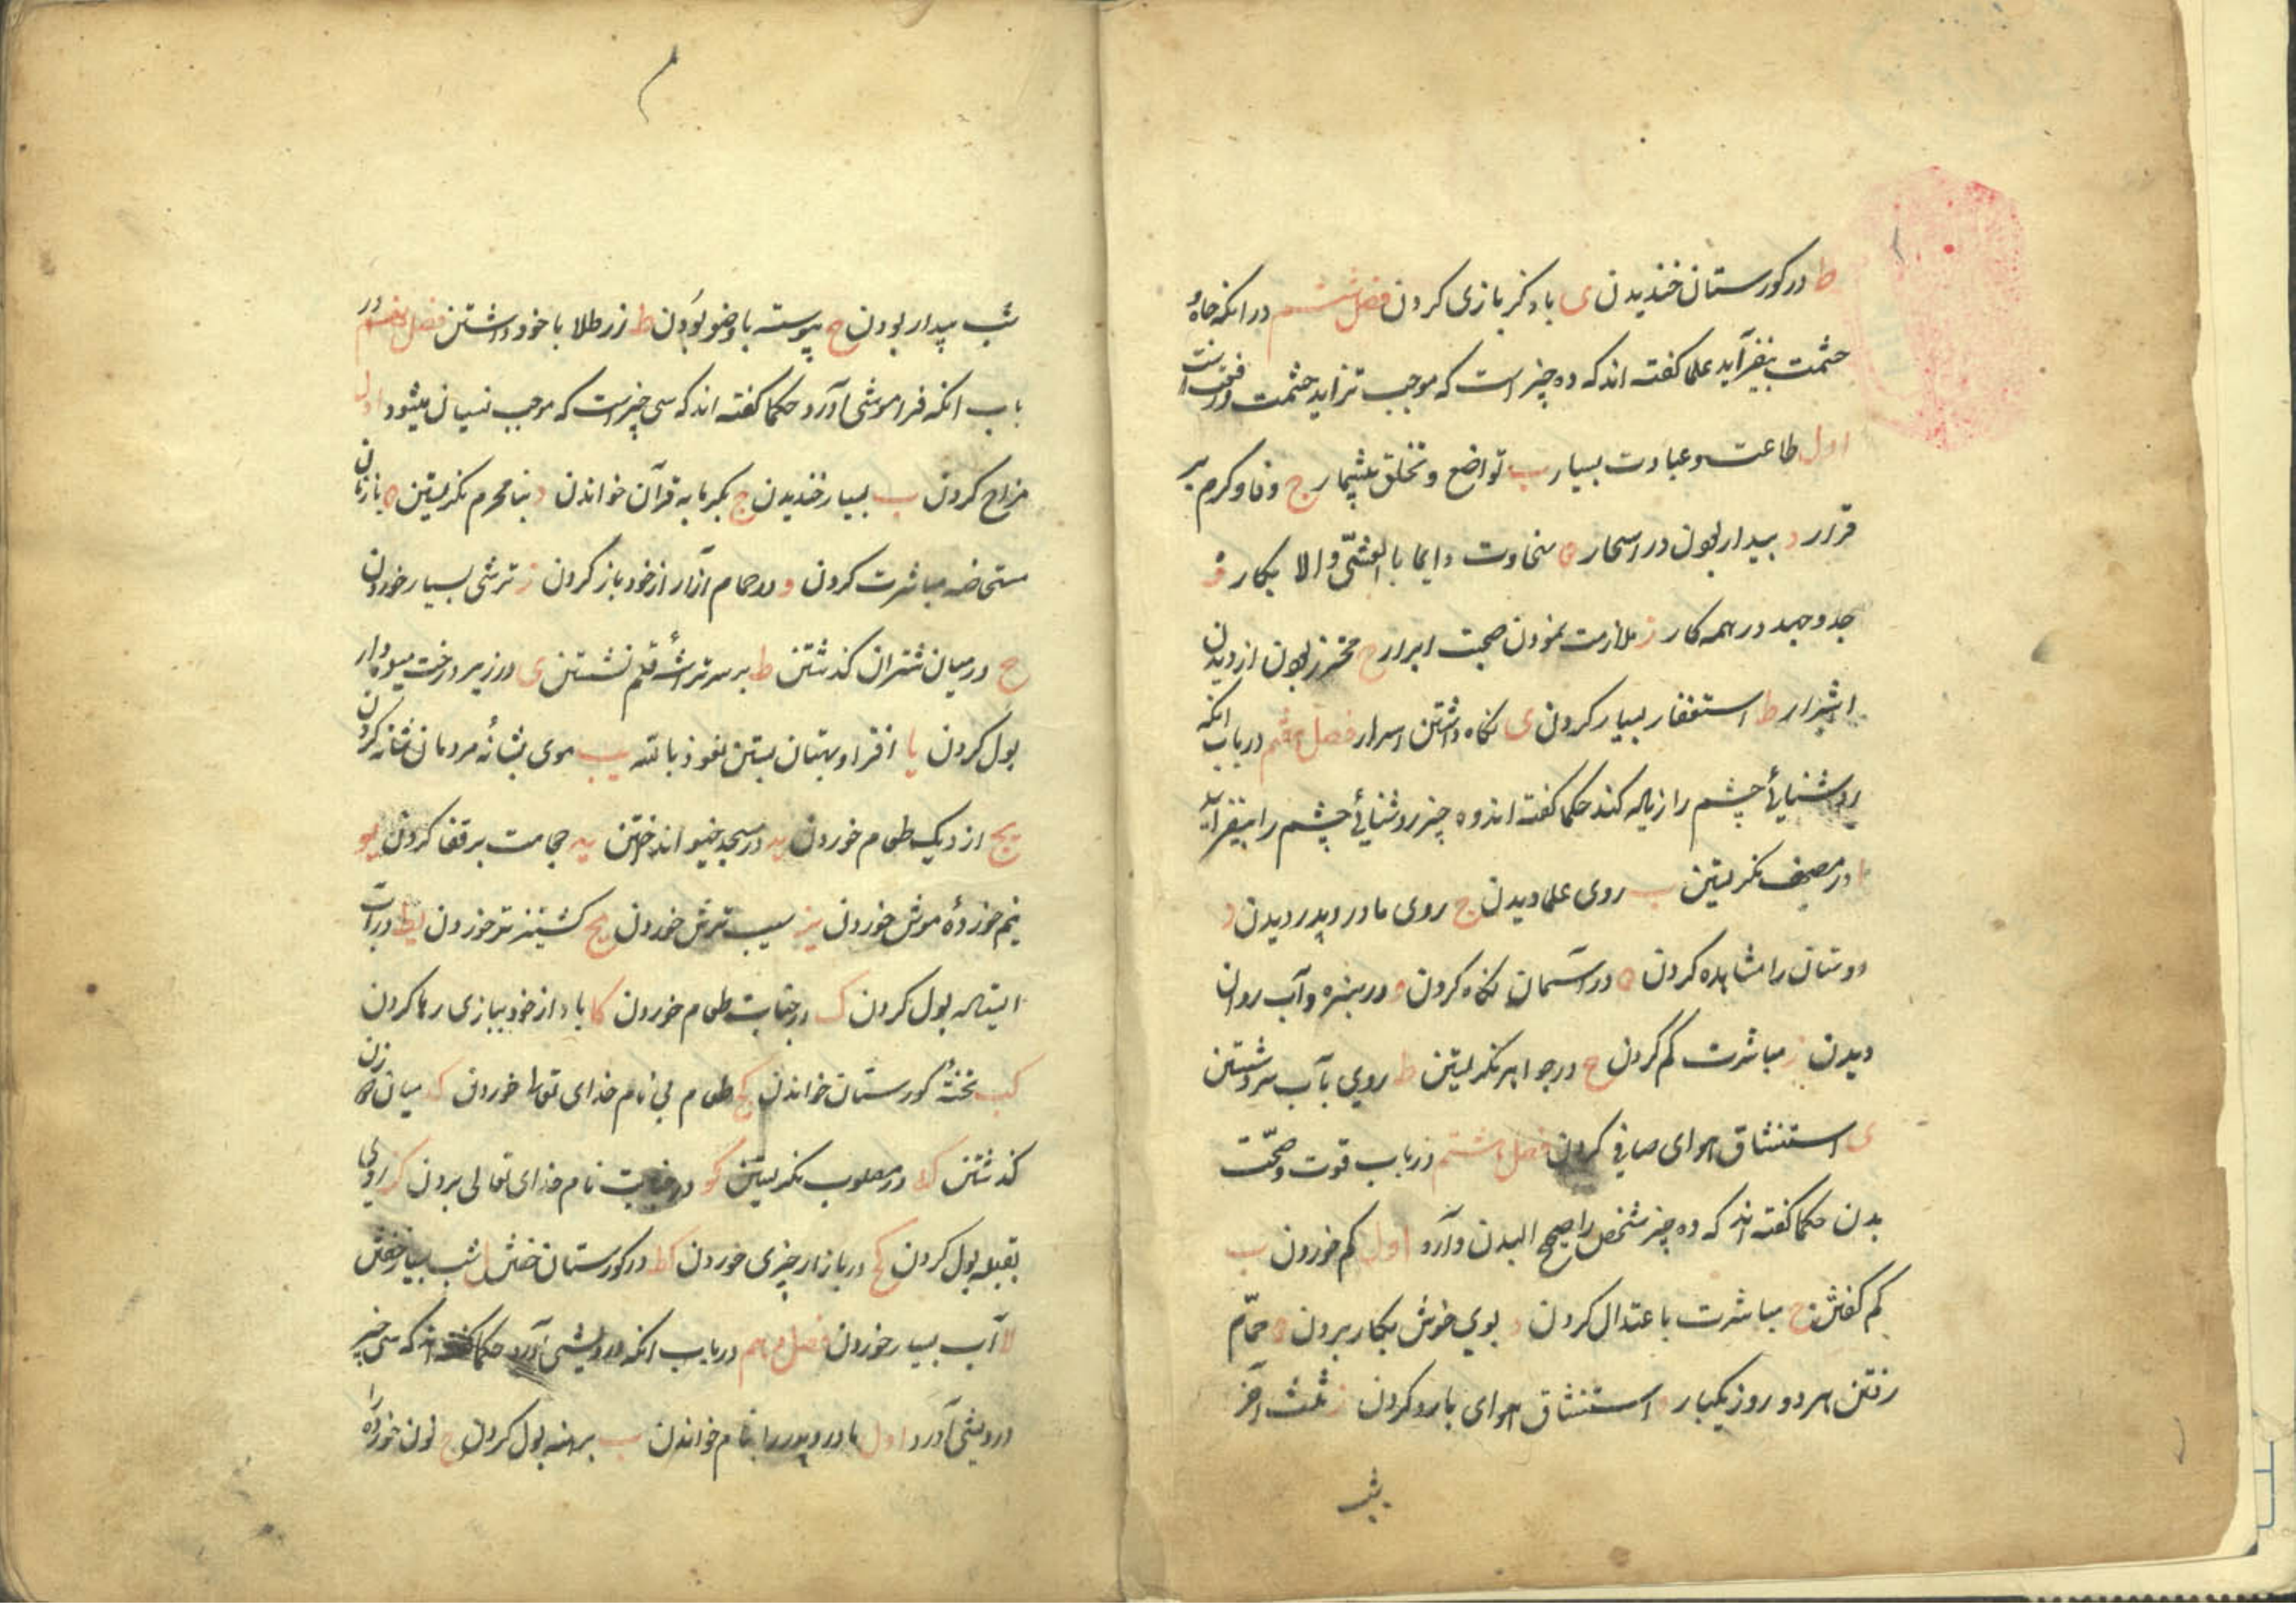 ط در کورستان خندیدن ی با ذکر بازی کردن فصل ششم در انکه جاه و
حشمت بیفزاید علما کفته اند که ده چیز است که موجب تزاید حشمت و رفعت است
اول طاعت و عبادت بسیار ب تواضع و تخلق بیشمار ج وفا و کرم بر
قرار د بیدار بودن در اسحار ه سخاوت دایما بالعشی والابکار و
جد و جهد در همه کار ز ملازمت نمودن صحبت ابرار ح محترز بودن از دیدن
اشرار ط استغفار بسیار کردن ی نکاه داشتن اسرار فصل هفتم در باب انکه
روشنائی چشم را زیاله کند حکما کفته اند ده چیز روشنائی چشم را بیفزاید
ا در مصحف نکریستن ب روی علما دیدن ج روی مادر و پدر دیدن د
دوستان را مشاهده کردن ه در آسمان نکاه کردن و در سبزه و آب روان
دیدن ز مباشرت کم کردن ح در جواهر نکریستن ط روی بآب سرد شستن
ی استنشاق هوای صافی کردن فصل هشتم در باب قوت و صحّت
بدن حکما کفته اند که ده چیز شخص را صحیح البدن دارد اول کم خوردن ب
کم کفتن ج مباشرت باعتدال کردن د بوی خوش بکار بردن ه حمّام
رفتن هر دو روز یکبار و استنشاق هوای بارد کردن ز ثلث آخر
شب
شب بیدار بودن ح پیوسته با وضو بودن ط زر طلا با خود داشتن فصل نهم در
باب انکه فراموشی آورد حکما کفته اند که سی چیز است که موجب نسیان میشود اول
مزاح کردن ب بسیار خندیدن ج بکرمابه قرآن خواندن د بنامحرم نکریستن ه با زنان
مستحاضه مباشرت کردن و در حمام آزار از خود باز کردن ز ترشی بسیار خوردن
ح در میان شتران کذشتن ط بر سر تراشهٔ قلم نشستن ی در زیر درخت میوه دار
بول کردن یا افترا و بهتان بستن نعوذ بالله یب موی بشانهٔ مردمان شانه کردن
یج از دیک طعام خوردن ید در مسجد خیو انداختن یه حجامت بر قفا کردن یو
نیم خوردهٔ موش خوردن یز سیب ترش خوردن یح کشنیز تر خوردن یط در آب
ایستاله بول کردن ک در جنابت طعام خوردن کا باد از خود ببازی رها کردن
کب تختهٔ کورستان خواندن کج طعام بی نام خدای تعالی خوردن کد میان دو زن
کذشتن که در مصلوب نکریستن کو در جنابت نام خدای تعالی بردن کز روی
بقبله بول کردن کح در بازار چیزی خوردن کط در کورستان خفتن ل شب بسیار خفتن
لا آب بسیار خوردن فصل دهم در باب انکه درویشی آورد حکما کفته اند که سی چیز
درویشی آورد اول مادر و پدر را بنام خواندن ب برهنه بول کردن ج نون خورده را